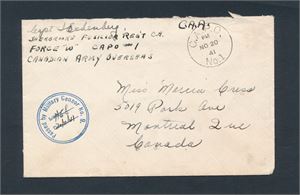 Capt
C.A.(A)
Sherbrooke Fusilier Reg't C.A.
Force "W" CAPO #1
Canadian Army Overseas
C.A.P.O.
PM
NO 20
41
No. 1
Miss Mercia Cress
5019 Park Ave
Montreal Que
Canada
Passed by Military Censor No.